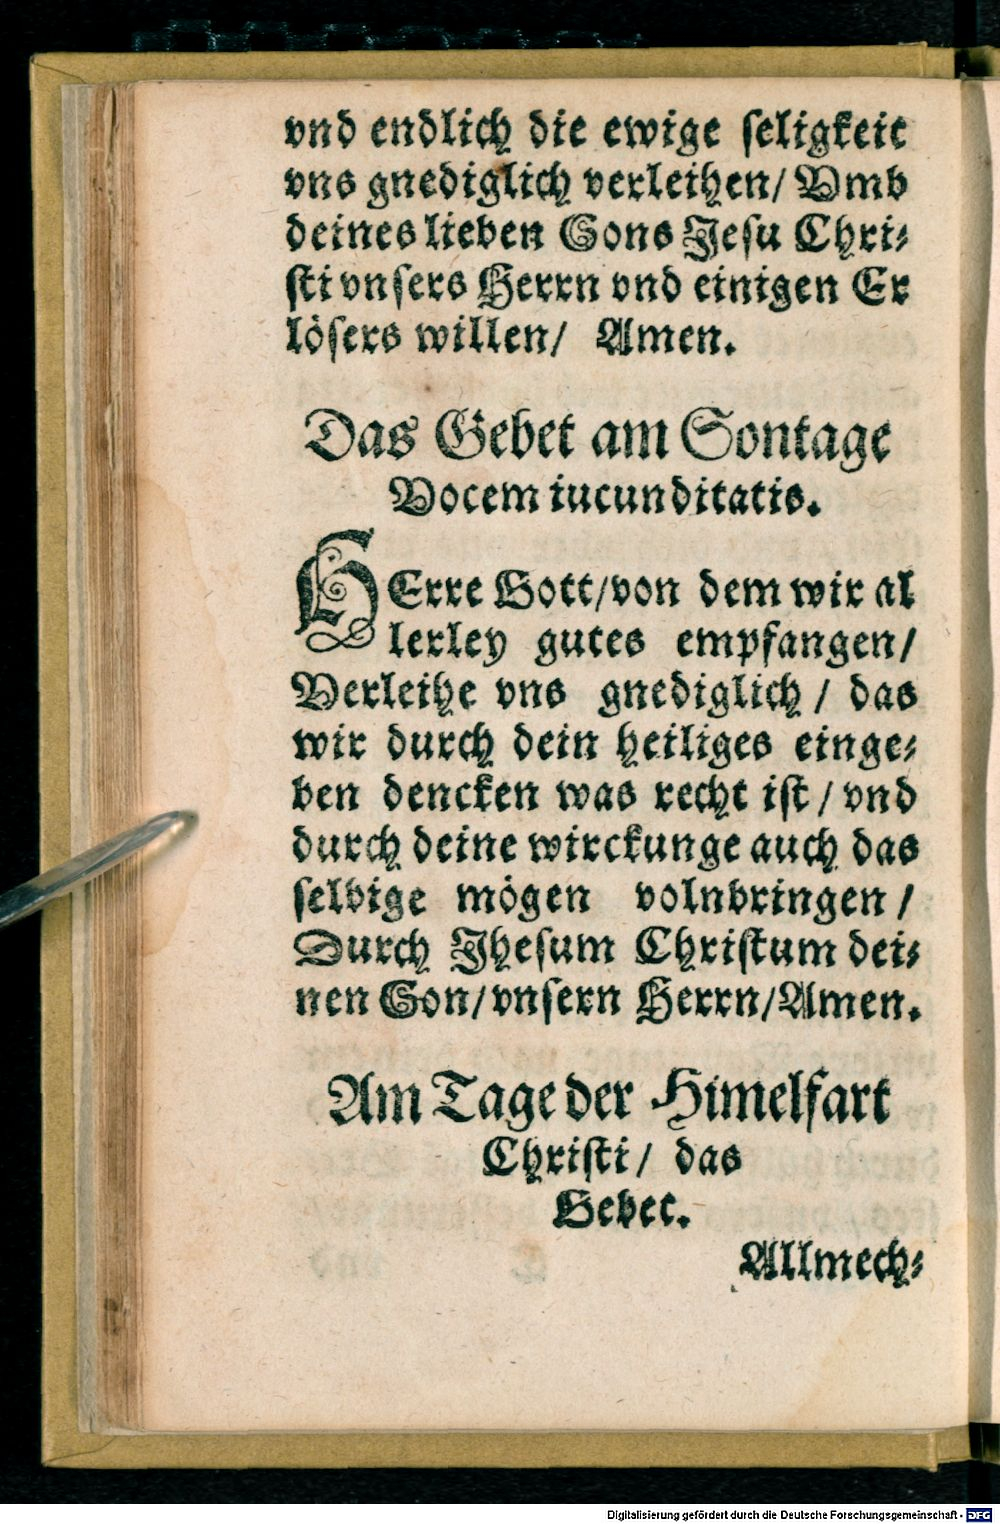 vnd endlich die ewige ſeligkeit
vns gnediglich verleihen/ Vmb
deines lieben Sons Jeſu Chri-
ſti vnſers Herrn vnd einigen Er
löſers willen/ Amen.
Das Gebet am Sontage
Vocem iucunditatis.
HErre Gott/von dem wir al
lerley gutes empfangen/
Verleihe vns gnediglich / das
wir durch dein heiliges einge-
ben dencken was recht iſt / vnd
durch deine wirckunge auch das
ſelbige mögen volnbringen /
Durch Jheſum Chriſtum dei-
nen Son/vnſern Herrn/Amen.
Am Tage der Himelfart
Chriſti/ das
Gebet.
Allmech-
Digitalisierung gefördert durch die Deutsche Forschungsgemeinschaft - DFG